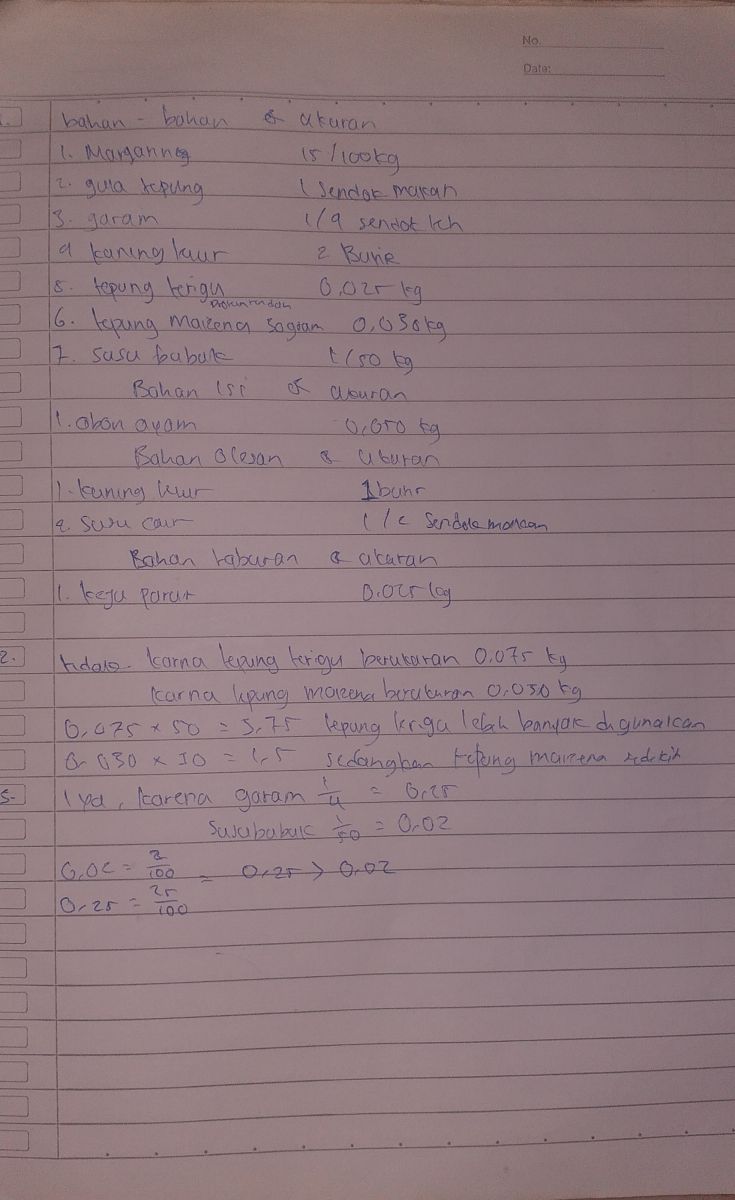 No.
Date:
1. bahan - bahan & ukuran
1. Margarine 15/100kg
2. gula tepung 1 Sendok makan
3. garam 1/4 sendok teh
4 kuning telur 2 Butir
5. tepung terigu 0,025 kg
6. tepung maizena 50gram 0,030kg
7. susu bubuk 1/50 kg
Bahan isi & ukuran
1. abon ayam 0,050 kg
Bahan Olesan & ukuran
1. kuning telur 1 buhr
2. susu cair 1/2 Sendok makan
Bahan taburan & ukuran
1. keju parut 0.025 kg
2. tidak. karna tepung terigu berukuran 0.075 kg
karna tepung maizena berukuran 0.030 kg
0,075 x 50 = 3,75 tepung terigu lebih banyak digunakan
0.030 x 50 = 1,5 sedangkan tepung maizena sedikit
3. Iya, karena garam 1/4 = 0,25
Susu bubuk 1/50 = 0,02
0,02 = 2/100 = 0,25 > 0,02
0,25 = 25/100